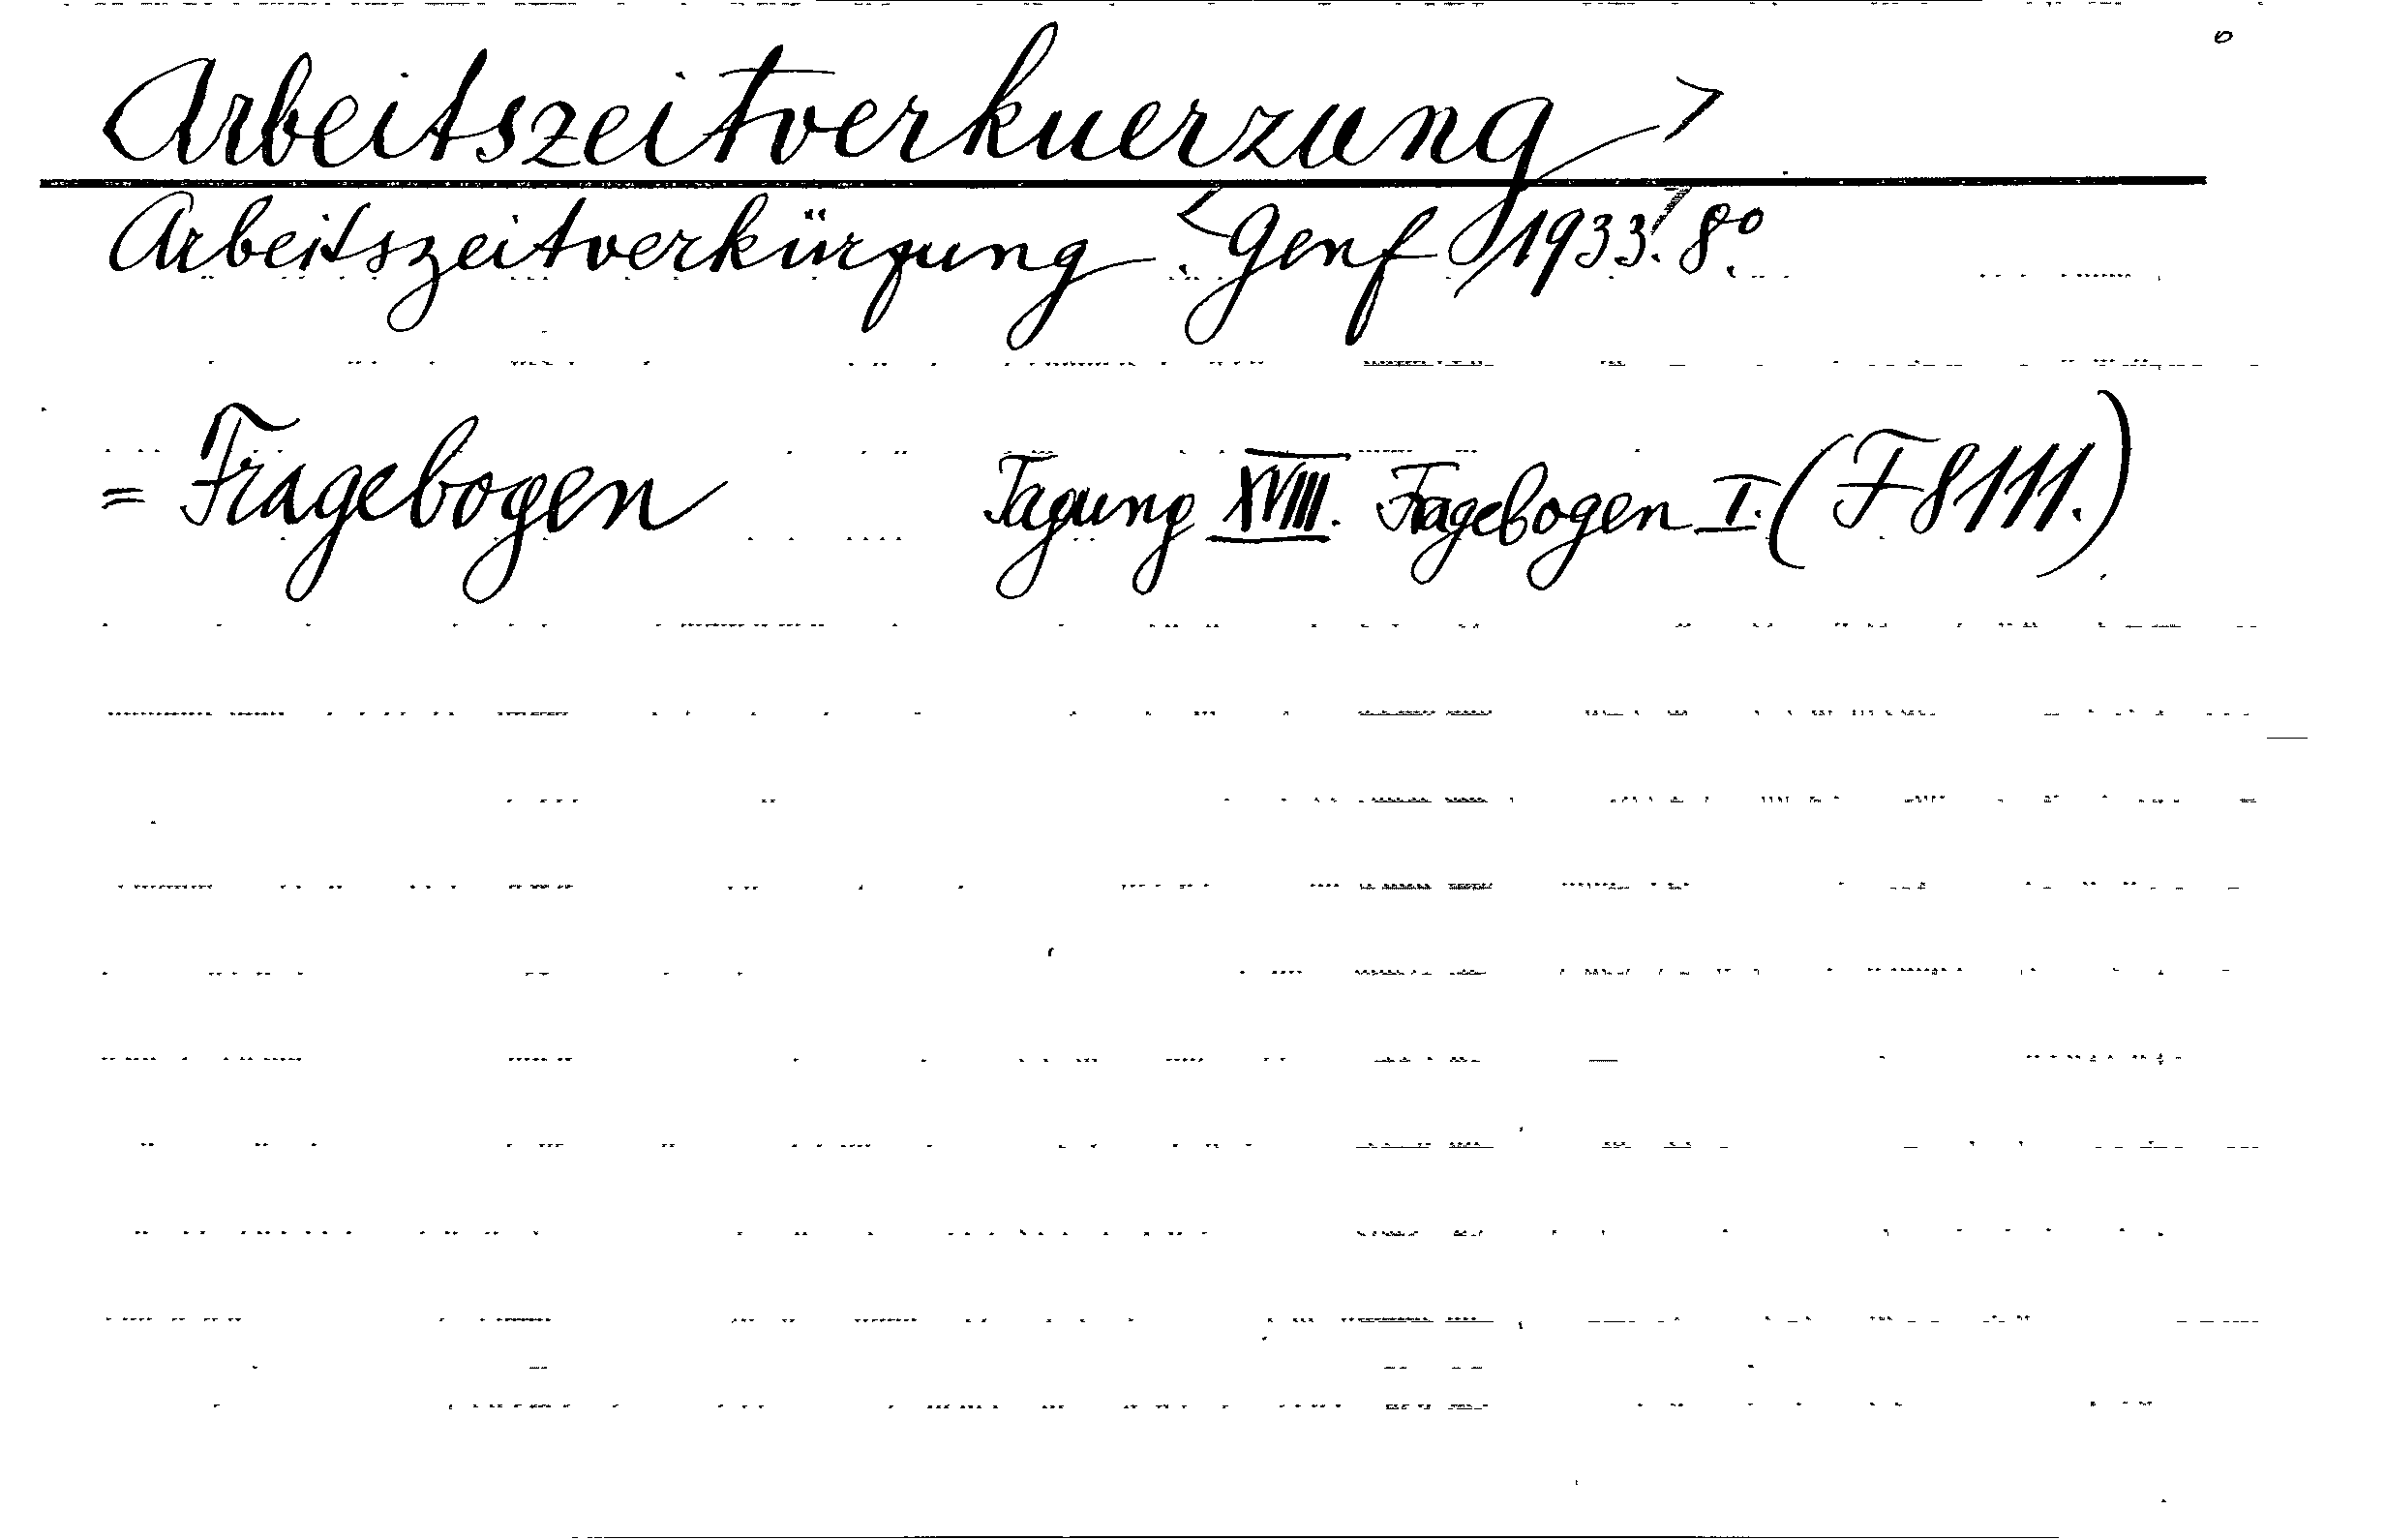 Arbeitszeitverkuerzung
Arbeitszeitverkürzung. <Genf 1933.> 8°.
= Fragebogen Tagung XVIII. Fragebogen I. (F 8111.)